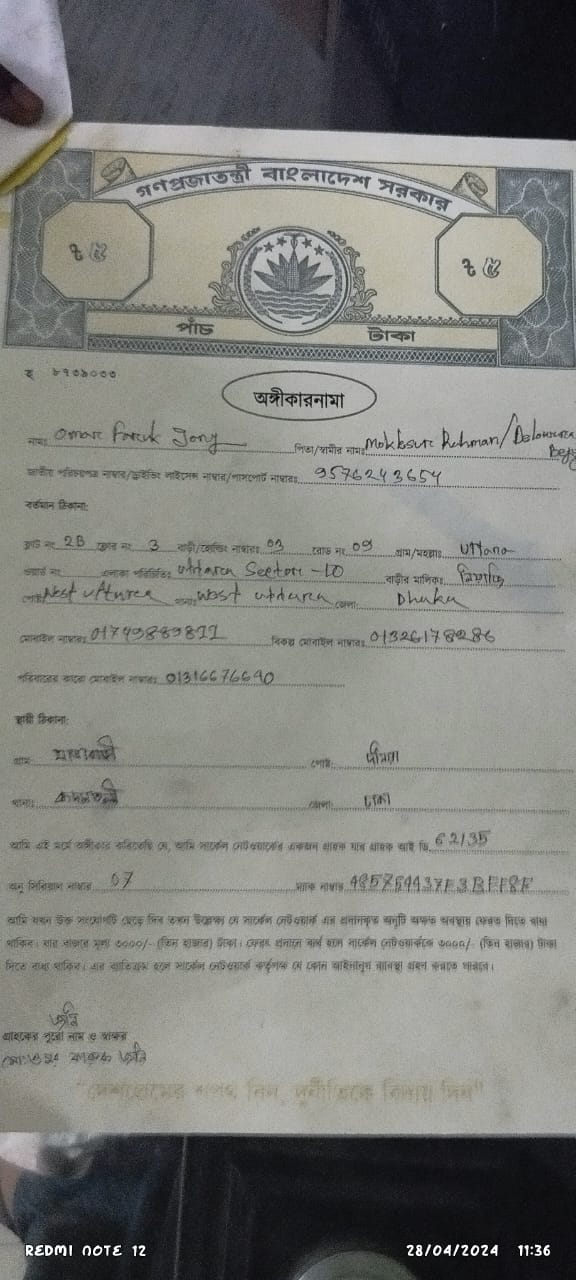 গণপ্রজাতন্ত্রী বাংলাদেশ সরকার
৳ ৫ ৳ ৫
পাঁচ টাকা
৮৭০৯০০০
অঙ্গীকারনামা
নামঃ Omar Faruk Jony পিতা/স্বামীর নামঃ Mokbsur Rehman/
জাতীয় পরিচয়পত্র নাম্বার/ড্রাইভিং লাইসেন্স নাম্বার/পাসপোর্ট নাম্বারঃ 9576243654
বর্তমান ঠিকানা:
ফ্লাট নং 2B ফ্লোর নং 3 বাড়ী/হোল্ডিং নাম্বারঃ 03 রোড নং 09 গ্রাম/মহল্লাঃ Uttara
ওয়ার্ড নং এলাকা পরিচিতিঃ Uttara Sector-10 বাড়ীর মালিকঃ
West Uttara থানাঃ West Uttara জেলাঃ Dhaka
মোবাইল নাম্বারঃ 01749889811 বিকল্প মোবাইল নাম্বারঃ 01326178286
পরিবারের কারো মোবাইল নাম্বারঃ 01316676640
স্থায়ী ঠিকানা:
গ্রামঃ পোষ্টঃ
থানাঃ কদমতলী জেলাঃ ঢাকা
আমি এই মর্মে অঙ্গীকার করিতেছি যে, আমি সার্কেল নেটওয়ার্কের একজন গ্রাহক যার গ্রাহক আই ডি 62135
অনু সিরিয়াল নাম্বার 07 ম্যাক নাম্বার
আমি যখন উক্ত সংযোগটি ছেড়ে দিব তখন উল্লেখ্য যে সার্কেল নেটওয়ার্ক এর প্রদানকৃত অনুটি অক্ষত অবস্থায় ফেরত দিতে বাধ্য
থাকিব। যার বাজার মূল্য ৩০০০/- (তিন হাজার) টাকা। ফেরৎ প্রদানে ব্যর্থ হলে সার্কেল নেটওয়ার্ককে ৩০০০/- (তিন হাজার) টাকা
দিতে বাধ্য থাকিব। এর ব্যতিক্রম হলে সার্কেল নেটওয়ার্ক কর্তৃপক্ষ যে কোন আইনানুগ ব্যবস্থা গ্রহণ করতে পারবে।
জনি
গ্রাহকের পুরো নাম ও স্বাক্ষর
মোঃ ওমর ফারুক জনি
"দেশপ্রেমের শপথ নিন, দুর্নীতিকে বিদায় দিন"
REDMI NOTE 12 28/04/2024 11:36